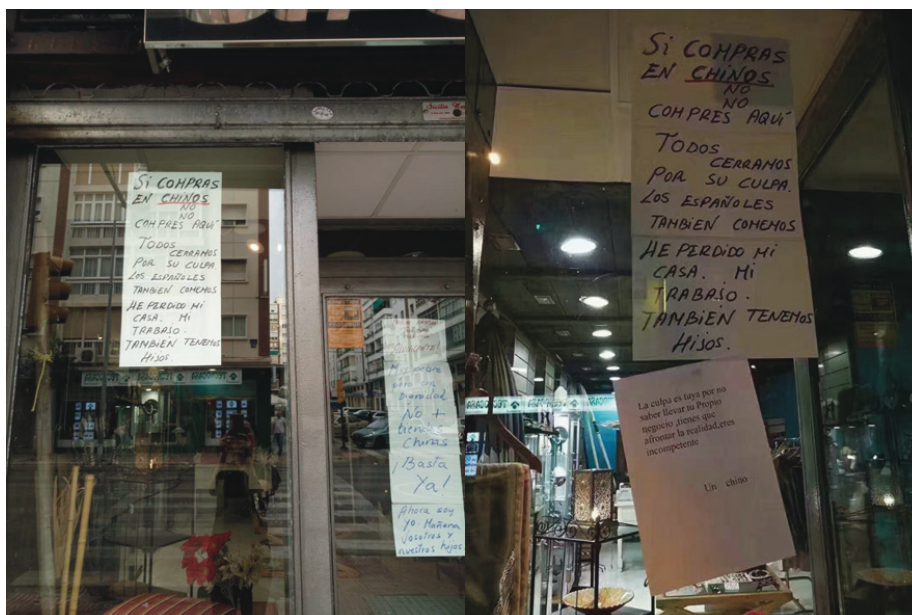 Si COMPRAS
EN CHINOS
NO
NO
COMPRES AQUÍ
TODOS
CERRAMOS
POR SU CULPA.
LOS ESPAÑOLES
TAMBIEN COMEMOS
HE PERDIDO MI
CASA. MI
TRABAJO.
TAMBIEN TENEMOS
HIJOS.
Dignidad
No +
tiendas
Chinas
¡Basta
Ya!
Ahora soy
yo Mañana
vosotros y
nuestros hijos
Si COMPRAS
EN CHINOS
NO
NO
COMPRES AQUÍ
TODOS
CERRAMOS
POR SU CULPA.
LOS ESPAÑOLES
TAMBIEN COMEMOS
HE PERDIDO MI
CASA. MI
TRABAJO.
TAMBIEN TENEMOS
HIJOS.
La culpa es tuya por no
saber llevar tu Propio
negocio ,tienes que
afrontar la realidad,eres
incompetente
Un chino